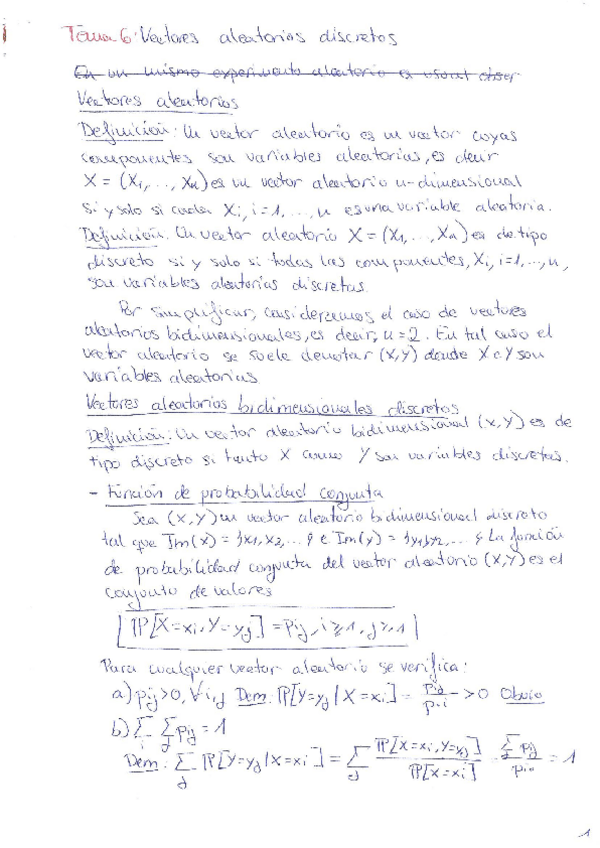 Tema 6: Vectores aleatorios discretos
En un mismo experimento aleatorio es usual obser
Vectores aleatorios
Definición: Un vector aleatorio es un vector cuyas
componentes son variables aleatorias, es decir
X = (X1, ..., Xn) es un vector aleatorio n-dimensional
si y solo si cada Xi, i=1, ..., n es una variable aleatoria.
Definición. Un vector aleatorio X = (X1, ..., Xn) es de tipo
discreto si y solo si todas las componentes, Xi, i=1, ..., n,
son variables aleatorias discretas.
Por simplificar, consideremos el caso de vectores
aleatorios bidimensionales, es decir, n=2. En tal caso el
vector aleatorio se suele denotar (X,Y) donde X e Y son
variables aleatorias
Vectores aleatorios bidimensionales discretos
Definición: Un vector aleatorio bidimensional (X,Y) es de
tipo discreto si tanto X como Y son variables discretas.
- Función de probabilidad conjunta
Sea (X,Y) un vector aleatorio bidimensional discreto
tal que Im(X) = {x1, x2, ...} e Im(Y) = {y1, y2, ...} La función
de probabilidad conjunta del vector aleatorio (X,Y) es el
conjunto de valores
IP[X=xi, Y=yj] = pij, i≥1, j≥1
Para cualquier vector aleatorio se verifica:
a) pij>0, ∀i,j Dem: IP[Y=yj | X=xi] = pij / p·i >0 Obvio
b) Σi Σj pij = 1
Dem: Σj IP[Y=yj | X=xi] = Σj IP[X=xi, Y=yj] / IP[X=xi] = Σj pij / pi· = 1
1